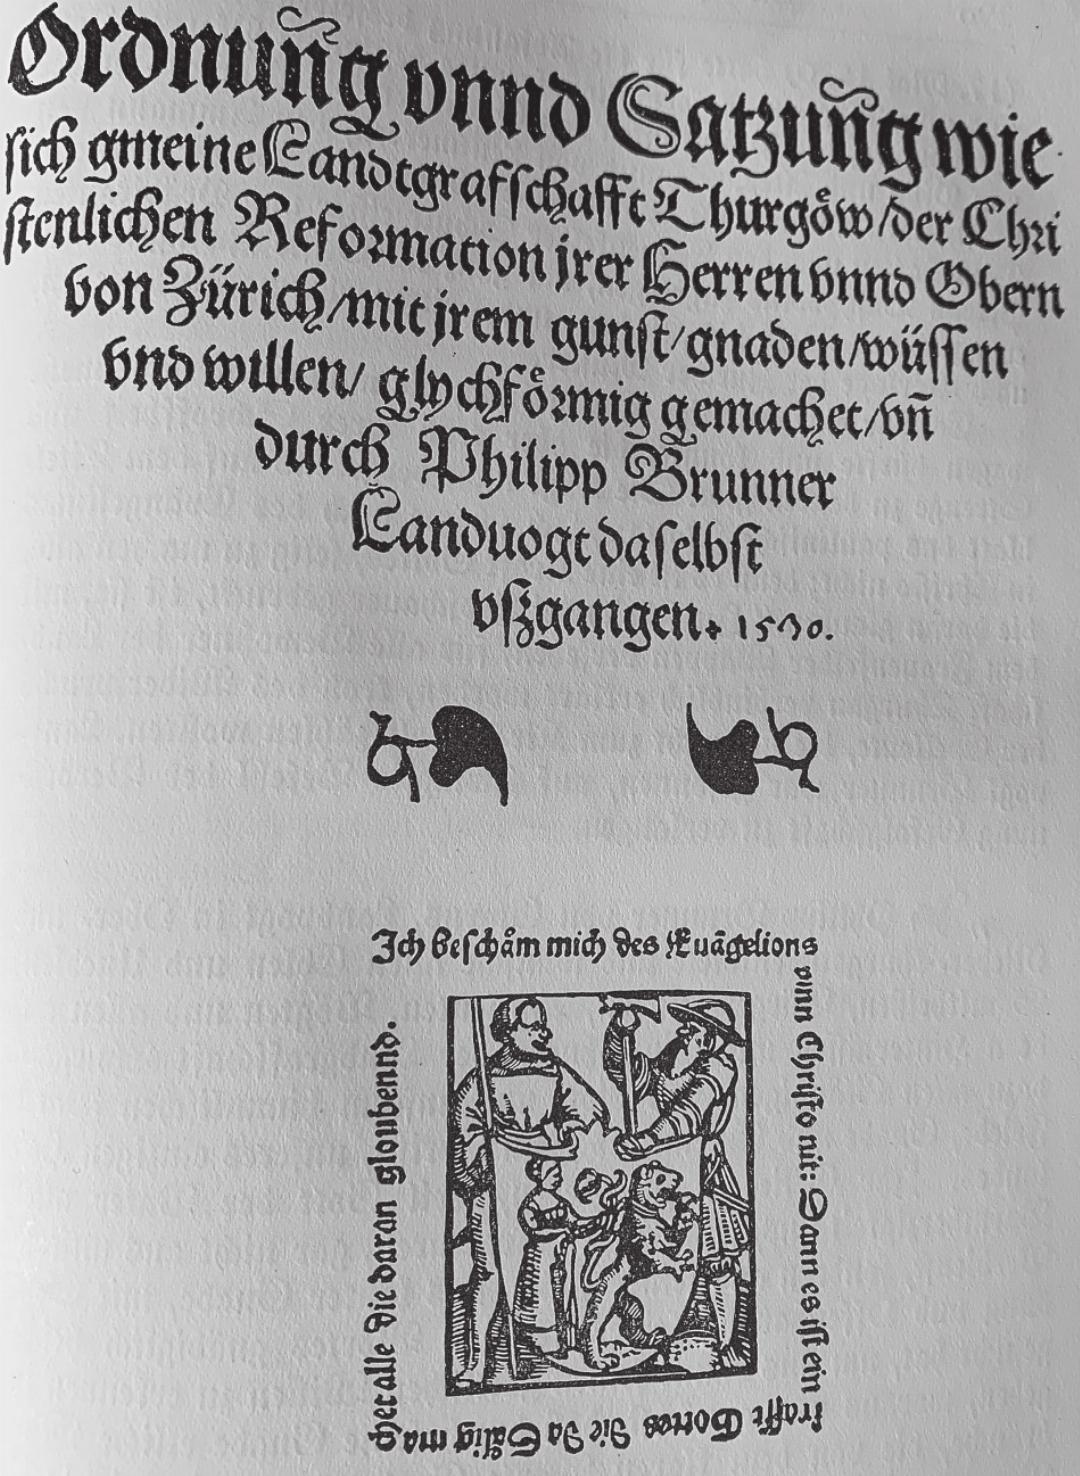 Ordnuñg vnnd Satzuñg wie
sich gmeine Landtgrafschafft Thurgöw/der Chri
stenlichen Reformation jrer Herren vnnd Obern
von Zürich/mit jrem gunst/gnaden/wüssen
vnd willen/ glychförmig gemachet/vñ
durch Philipp Brunner
Landuogt daselbst
vßgangen. 1530.
Ich beschåm mich des Euãgelions
vonn Christo nit: Dann es ist ein
krafft Gottes die da Sålig ma
chet alle die daran gloubennd.